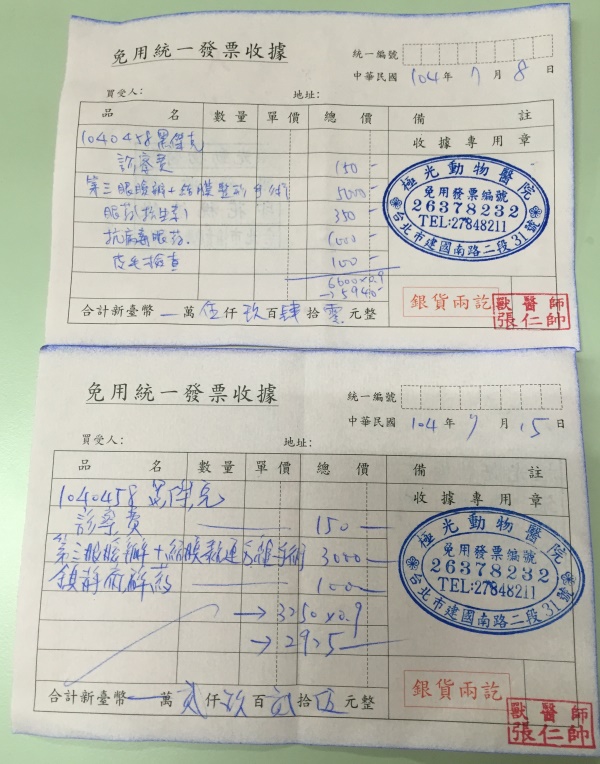 免用統一發票收據
統一編號
中華民國 104 年 7 月 8 日
買受人： 地址：
品 名 數量 單價 總價 備 註
1040458 黑傑克 收據專用章
診察費 150
第三眼瞼瓣+結膜整形手術 5000
眼药(抗生素) 350
抗病毒眼药 1000
皮毛檢查 100
6600×0.9
→5940
極光動物醫院
免用發票編號
26378232
TEL:27848211
台北市建國南路二段31號
合計新臺幣 一 萬 伍 仟 玖 百 肆 拾 零 元整
銀貨兩訖
獸醫師
張仁帥
免用統一發票收據
統一編號
中華民國 104 年 7 月 15 日
買受人： 地址：
品 名 數量 單價 總價 備 註
1040458 黑傑克 收據專用章
診察費 150
第三眼瞼瓣+結膜 手術 3000
鎮靜 药 100
→ 3250×0.9
→ 2925
極光動物醫院
免用發票編號
26378232
TEL:27848211
台北市建國南路二段31號
合計新臺幣 一 萬 貳 仟 玖 百 貳 拾 伍 元整
銀貨兩訖
獸醫師
張仁帥